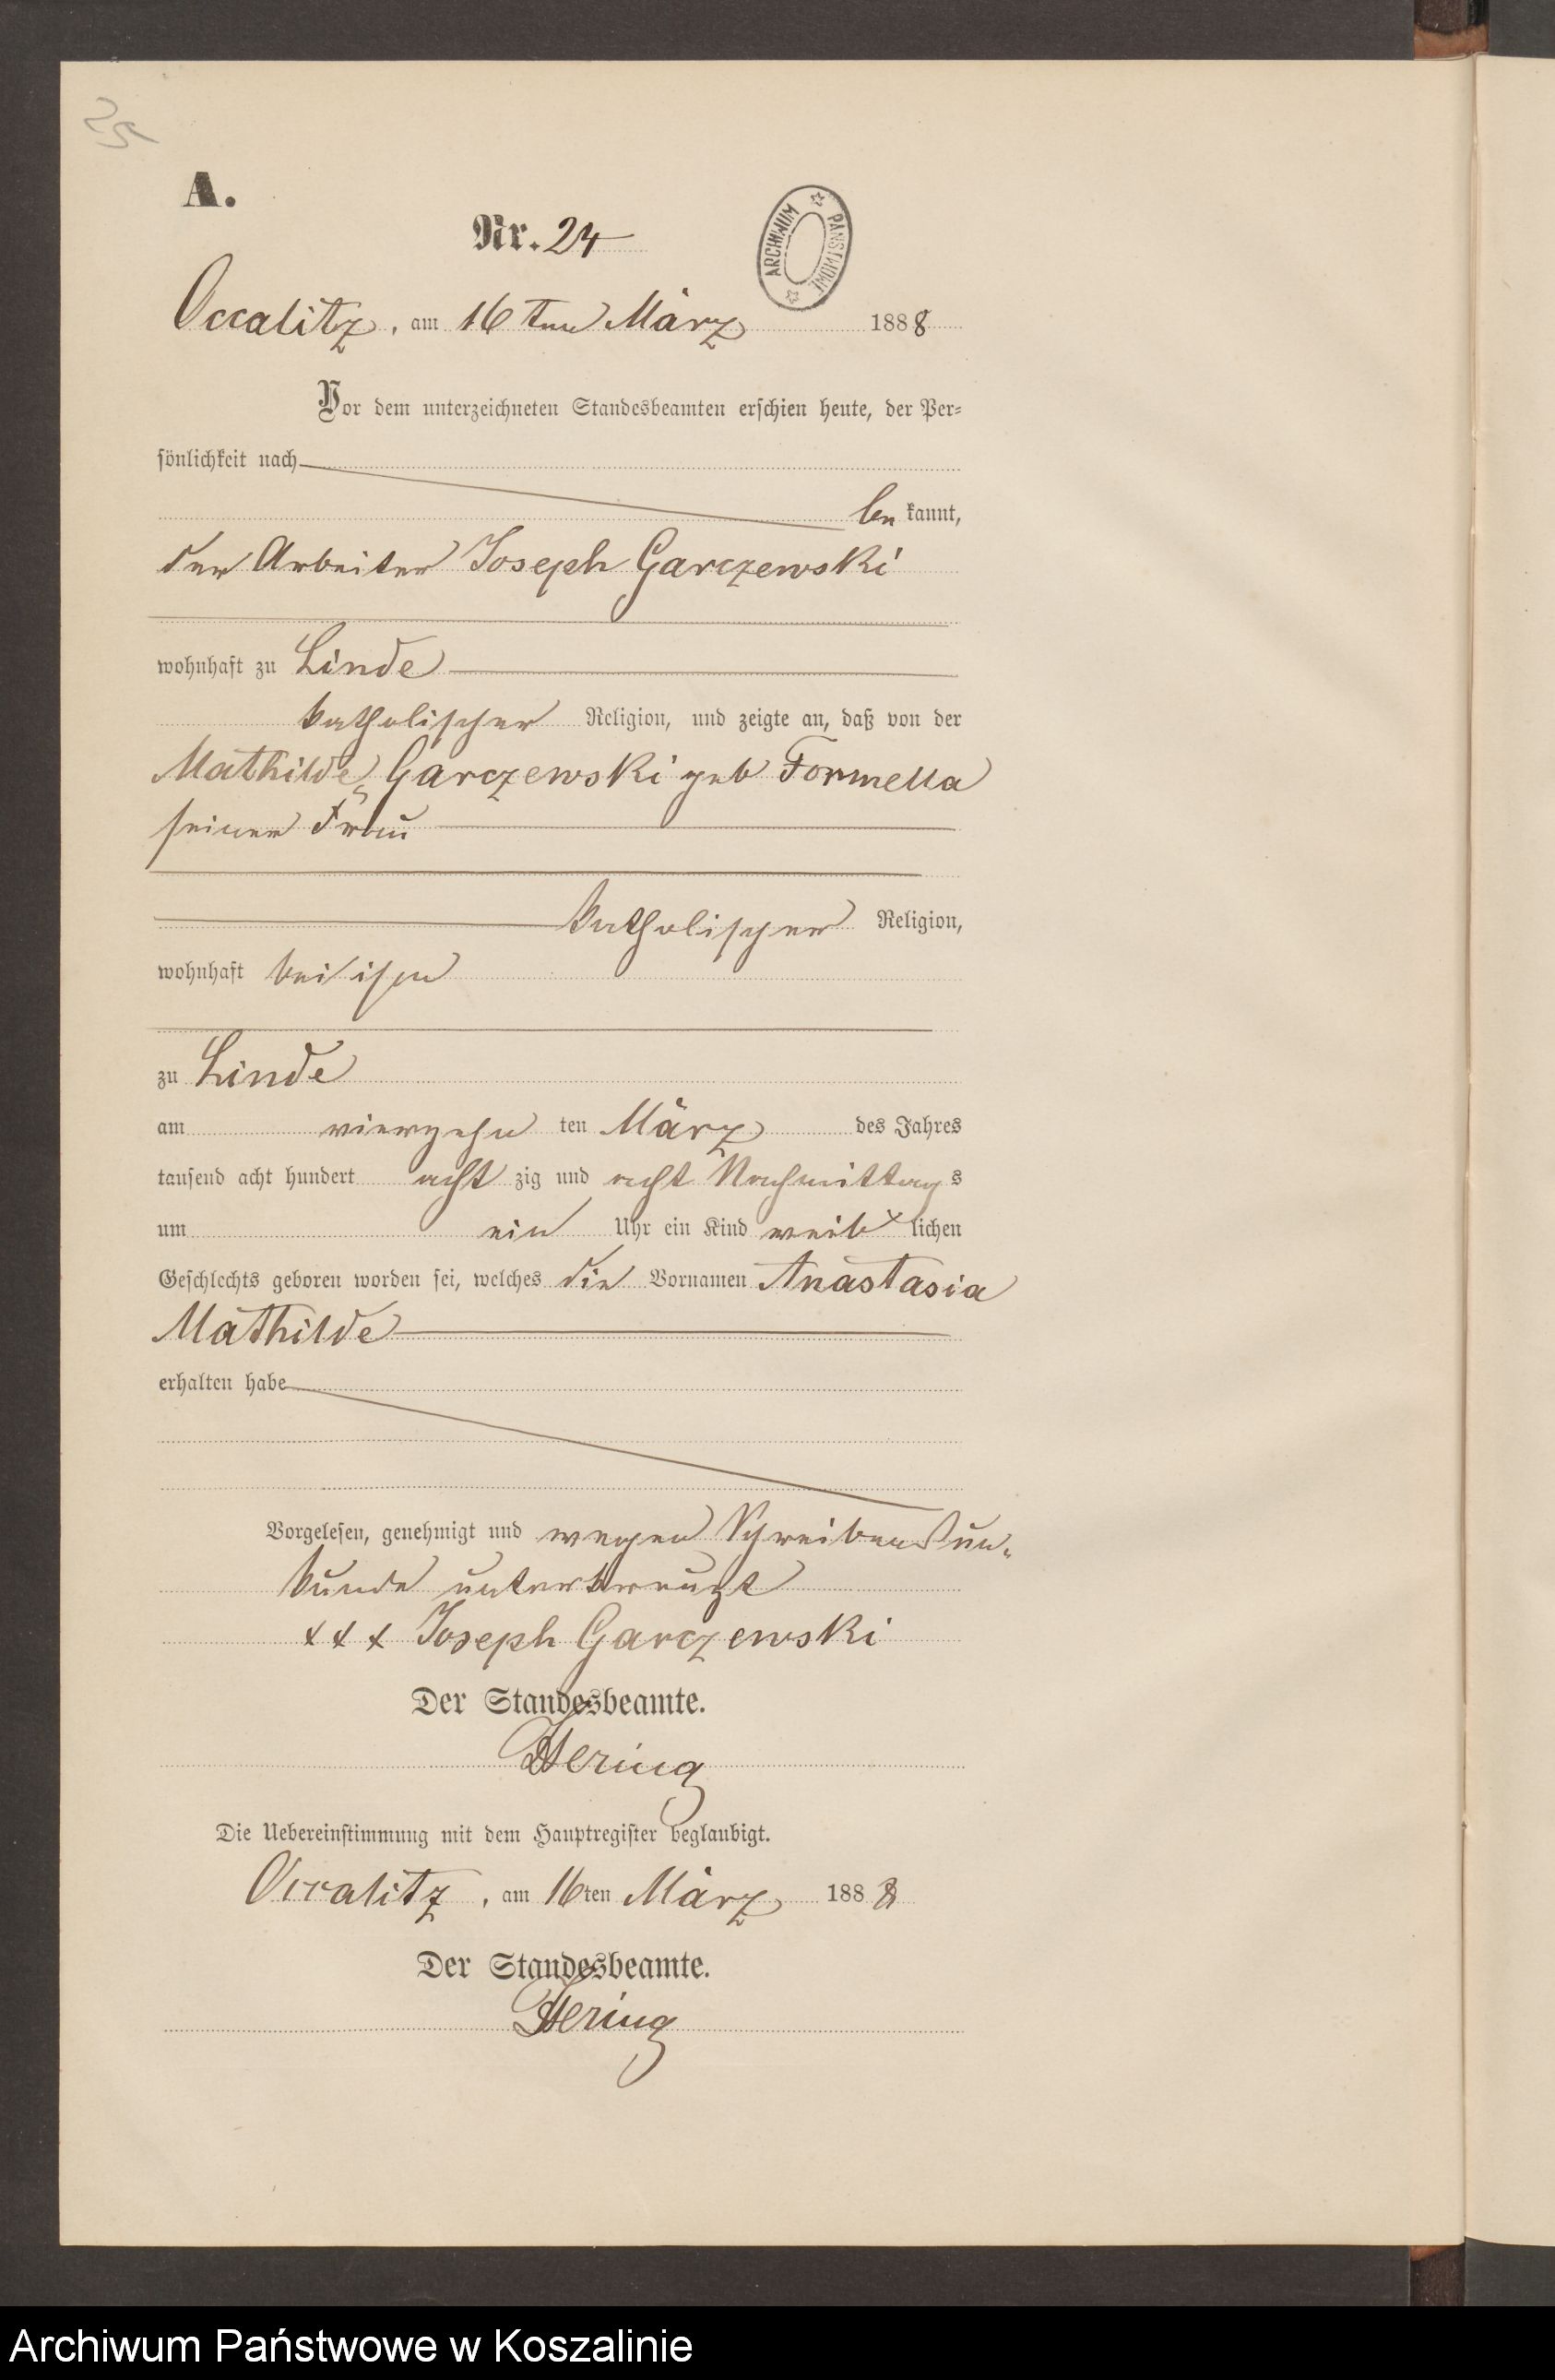 25
A.
Nr. 24
ARCHIWUM PAŃSTWOWE
Occalitz, am 16ten März 1888
Vor dem unterzeichneten Standesbeamten erschien heute, der Per-
sönlichkeit nach
be kannt,
der Arbeiter Joseph Garczewski
wohnhaft zu Linde
katholischer Religion, und zeigte an, daß von der
Mathilde Garczewski geb Formella
seiner Frau
katholischer Religion,
wohnhaft bei ihm
zu Linde
am vierzehn ten März des Jahres
tausend acht hundert acht zig und acht Nachmittags
um ein Uhr ein Kind weib lichen
Geschlechts geboren worden sei, welches die Vornamen Anastasia
Mathilde
erhalten habe
Vorgelesen, genehmigt und wegen Schreibens un-
kunde unterkreuzt
+ + + Joseph Garczewski
Der Standesbeamte.
Hering
Die Uebereinstimmung mit dem Hauptregister beglaubigt.
Occalitz, am 16ten März 1888
Der Standesbeamte.
Hering
Archiwum Państwowe w Koszalinie